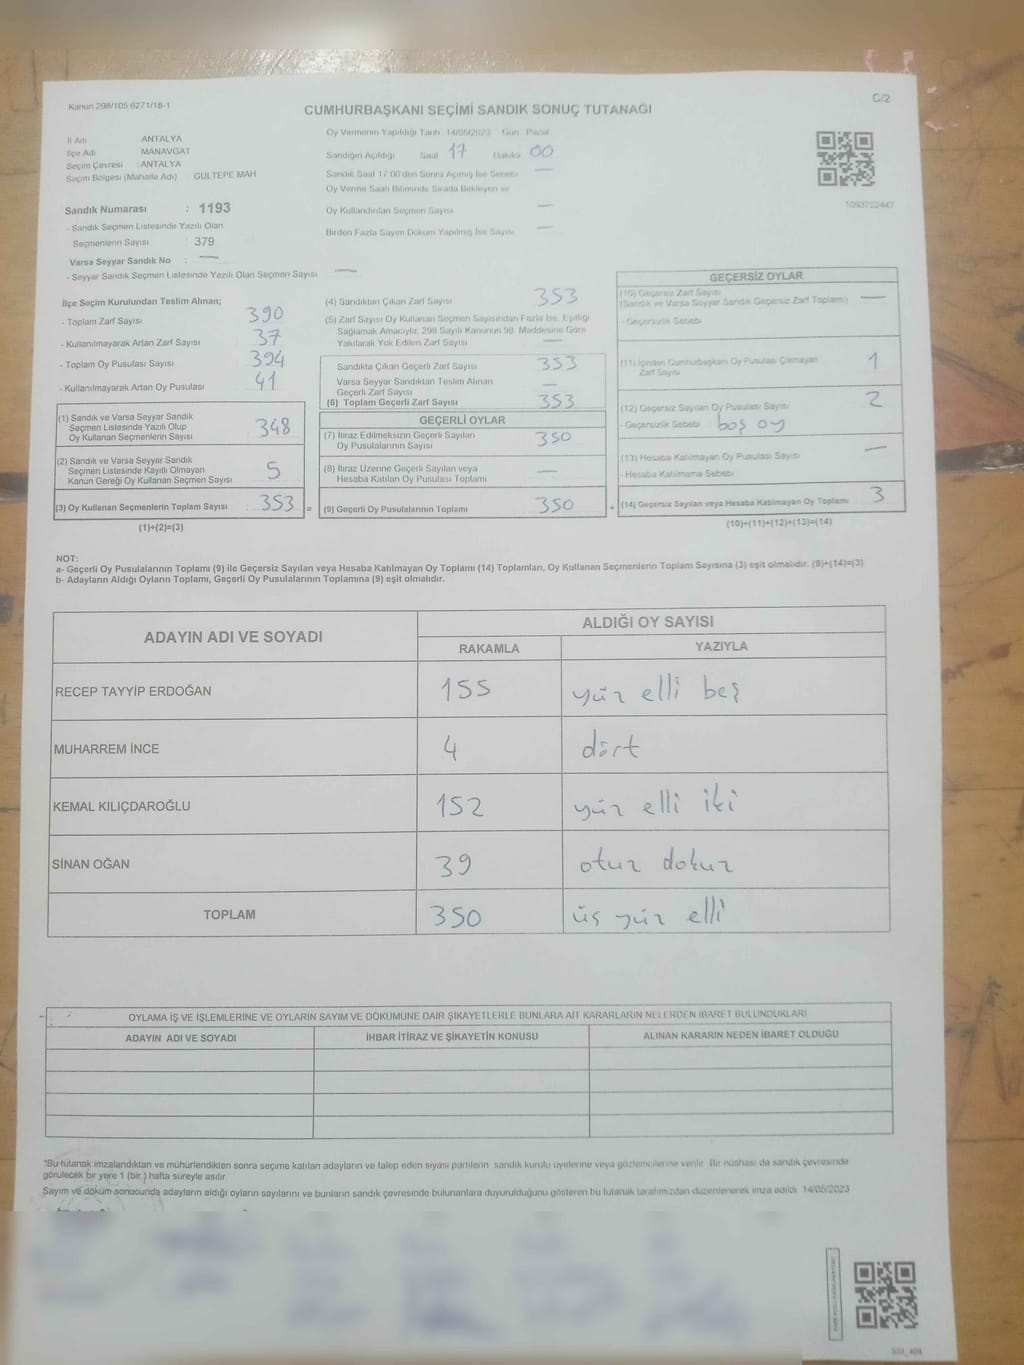 Kanun 298/105 6271/18-1
C/2
CUMHURBAŞKANI SEÇİMİ SANDIK SONUÇ TUTANAĞI
İl Adı ANTALYA
İlçe Adı MANAVGAT
Seçim Çevresi : ANTALYA
Seçim Bölgesi (Mahalle Adı) GÜLTEPE MAH
Oy Vermenin Yapıldığı Tarih 14/05/2023 Gün Pazar
Sandığın Açıldığı Saat 17 Dakika 00
Sandık Saat 17:00'den Sonra Açılmış İse Sebebi —
Oy Verme Saati Bitiminde Sırada Bekleyen ve
Oy Kullandırılan Seçmen Sayısı —
Birden Fazla Sayım Döküm Yapılmış İse Sayısı —
1093702447
Sandık Numarası : 1193
- Sandık Seçmen Listesinde Yazılı Olan
Seçmenlerin Sayısı : 379
Varsa Seyyar Sandık No : —
- Seyyar Sandık Seçmen Listesinde Yazılı Olan Seçmen Sayısı —
İlçe Seçim Kurulundan Teslim Alınan;
- Toplam Zarf Sayısı 390
- Kullanılmayarak Artan Zarf Sayısı 37
- Toplam Oy Pusulası Sayısı 394
- Kullanılmayarak Artan Oy Pusulası 41
(1) Sandık ve Varsa Seyyar Sandık
Seçmen Listesinde Yazılı Olup
Oy Kullanan Seçmenlerin Sayısı 348
(2) Sandık ve Varsa Seyyar Sandık
Seçmen Listesinde Kayıtlı Olmayan
Kanun Gereği Oy Kullanan Seçmen Sayısı 5
(3) Oy Kullanan Seçmenlerin Toplam Sayısı 353 =
(1)+(2)=(3)
(4) Sandıktan Çıkan Zarf Sayısı 353
(5) Zarf Sayısı Oy Kullanan Seçmen Sayısından Fazla İse, Eşitliği
Sağlamak Amacıyla, 298 Sayılı Kanunun 98. Maddesine Göre
Yakılarak Yok Edilen Zarf Sayısı —
Sandıkta Çıkan Geçerli Zarf Sayısı 353
Varsa Seyyar Sandıktan Teslim Alınan
Geçerli Zarf Sayısı —
(6) Toplam Geçerli Zarf Sayısı 353
GEÇERLİ OYLAR
(7) İtiraz Edilmeksizin Geçerli Sayılan
Oy Pusulalarının Sayısı 350
(8) İtiraz Üzerine Geçerli Sayılan veya
Hesaba Katılan Oy Pusulası Toplamı —
(9) Geçerli Oy Pusulalarının Toplamı 350 +
GEÇERSİZ OYLAR
(10) Geçersiz Zarf Sayısı
(Sandık ve Varsa Seyyar Sandık Geçersiz Zarf Toplamı) —
- Geçersizlik Sebebi
(11) İçinden Cumhurbaşkanı Oy Pusulası Çıkmayan
Zarf Sayısı 1
(12) Geçersiz Sayılan Oy Pusulası Sayısı 2
- Geçersizlik Sebebi boş oy
(13) Hesaba Katılmayan Oy Pusulası Sayısı —
- Hesaba Katılmama Sebebi
(14) Geçersiz Sayılan veya Hesaba Katılmayan Oy Toplamı 3
(10)+(11)+(12)+(13)=(14)
NOT:
a- Geçerli Oy Pusulalarının Toplamı (9) ile Geçersiz Sayılan veya Hesaba Katılmayan Oy Toplamı (14) Toplamları, Oy Kullanan Seçmenlerin Toplam Sayısına (3) eşit olmalıdır. (9)+(14)=(3)
b- Adayların Aldığı Oyların Toplamı, Geçerli Oy Pusulalarının Toplamına (9) eşit olmalıdır.
ADAYIN ADI VE SOYADI ALDIĞI OY SAYISI
RAKAMLA YAZIYLA
RECEP TAYYİP ERDOĞAN 155 yüz elli beş
MUHARREM İNCE 4 dört
KEMAL KILIÇDAROĞLU 152 yüz elli iki
SİNAN OĞAN 39 otuz dokuz
TOPLAM 350 üç yüz elli
OYLAMA İŞ VE İŞLEMLERİNE VE OYLARIN SAYIM VE DÖKÜMÜNE DAİR ŞİKAYETLERLE BUNLARA AİT KARARLARIN NELERDEN İBARET BULUNDUKLARI
ADAYIN ADI VE SOYADI İHBAR İTİRAZ VE ŞİKAYETİN KONUSU ALINAN KARARIN NEDEN İBARET OLDUĞU
*Bu tutanak imzalandıktan ve mühürlendikten sonra seçime katılan adayların ve talep eden siyasi partilerin sandık kurulu üyelerine veya gözlemcilerine verilir. Bir nüshası da sandık çevresinde
görülecek bir yere 1 (bir ) hafta süreyle asılır
Sayım ve döküm sonucunda adayların aldığı oyların sayılarını ve bunların sandık çevresinde bulunanlara duyurulduğunu gösteren bu tutanak tarafımızdan düzenlenerek imza edildi. 14/05/2023